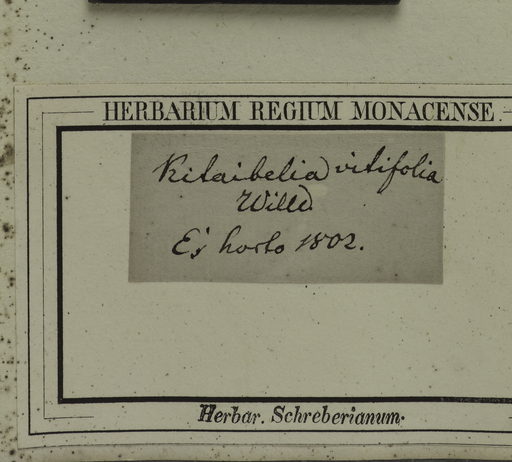 HERBARIUM REGIUM MONACENSE.
Kitaibelia vitifolia
Willd
Ej horto 1802.
Herbar. Schreberianum.